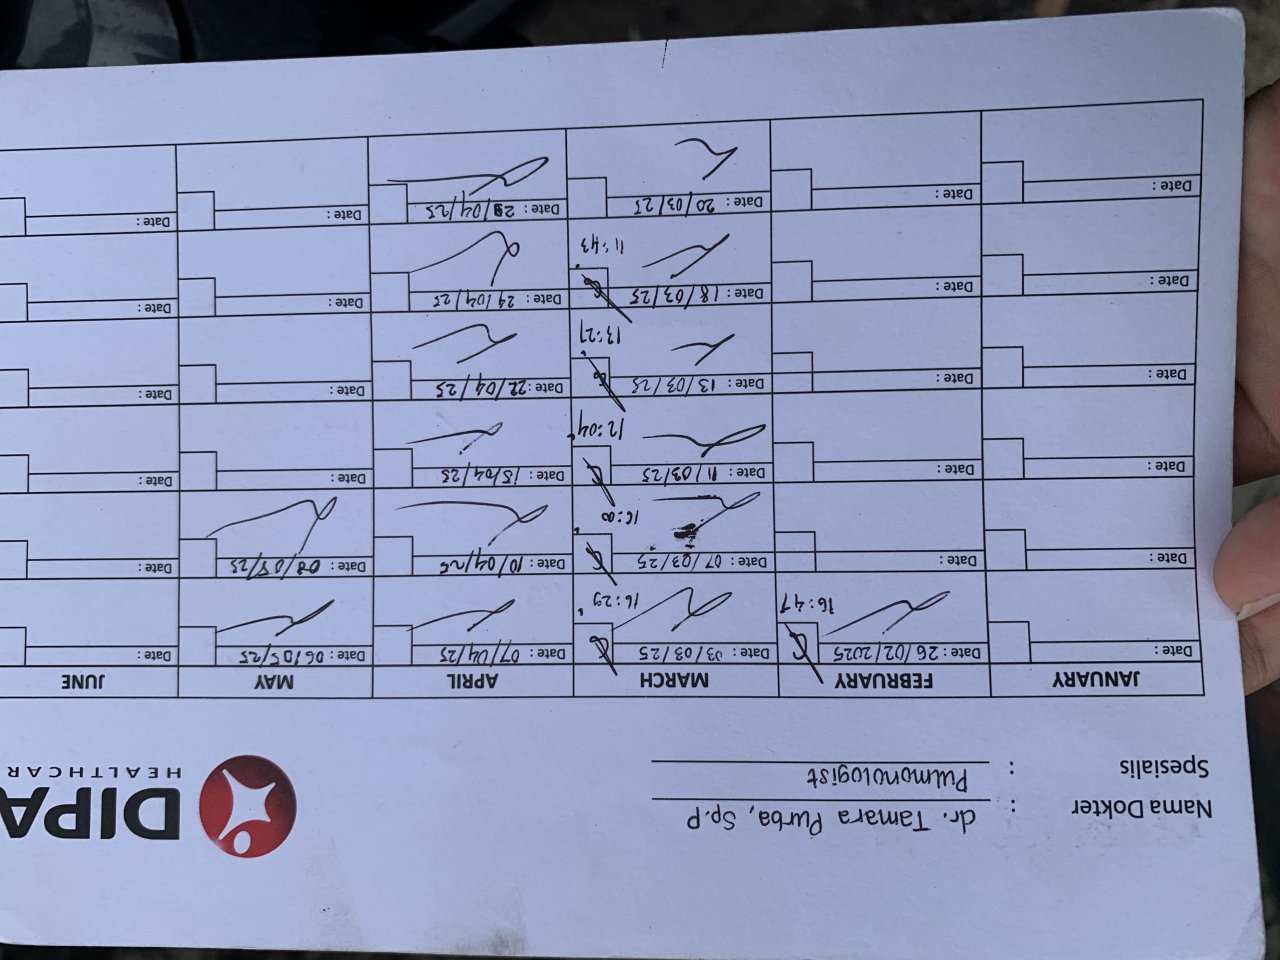 Nama Dokter : dr. Tamara Purba, Sp.P
Spesialis : Pulmonologist
DIPA
HEALTHCAR
JANUARY FEBRUARY MARCH APRIL MAY JUNE
Date : Date : 26/02/2025 Date : 03/03/25 Date : 07/04/25 Date : 06/05/25 Date :
16:47 16:29
Date : Date : Date : 07/03/25 Date : 10/04/25 Date : 08/05/25 Date :
16:00
Date : Date : Date : 11/03/25 Date : 15/04/25 Date : Date :
12:04
Date : Date : Date : 13/03/25 Date : 22/04/25 Date : Date :
13:27
Date : Date : Date : 18/03/25 Date : 24/04/25 Date : Date :
11:43
Date : Date : Date : 20/03/25 Date : 29/04/25 Date : Date :